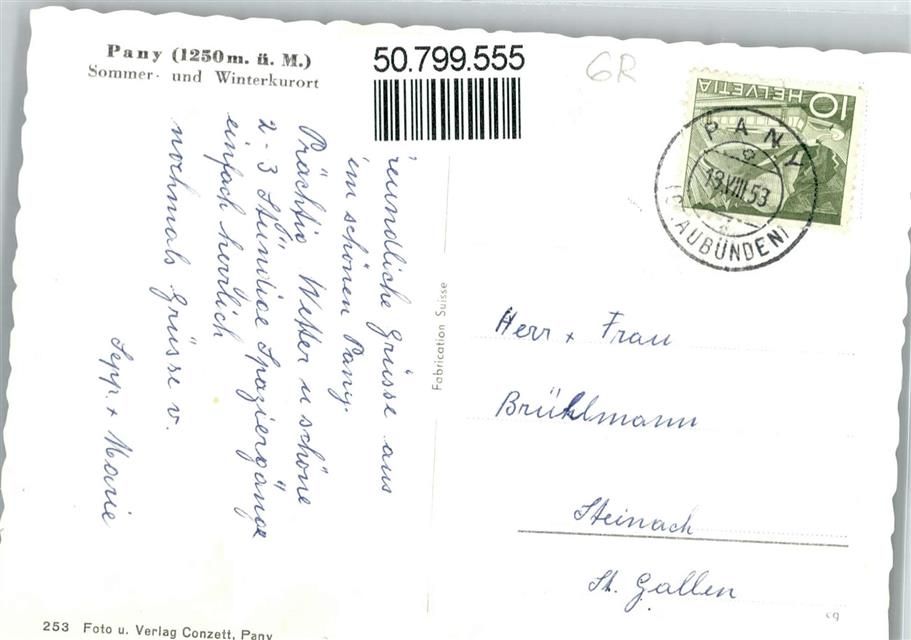 Pany (1250 m. ü. M.)
Sommer- und Winterkurort
50.799.555
GR
HELVETIA 10
PANY
13.VIII.53
(GRAUBÜNDEN)
reundliche Grüsse aus
im schönen Pany.
Prächtig Wetter u schöne
2-3 Stündige Spaziergänge
einfach herrlich
nochmals Grüsse v.
Sepp. + Marie
Fabrication Suisse
Herr + Frau
Brühlmann
Steinach
St. Gallen
253 Foto u. Verlag Conzett, Pany